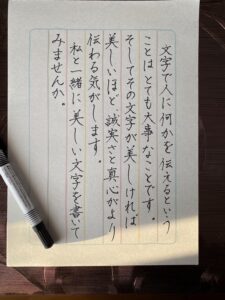 文字で人に何かを伝えるという
ことはとても大事なことです。
そしてその文字が美しければ
美しいほど、誠実さと真心がより
伝わる気がします。
私と一緒に美しい文字を書いて
みませんか。